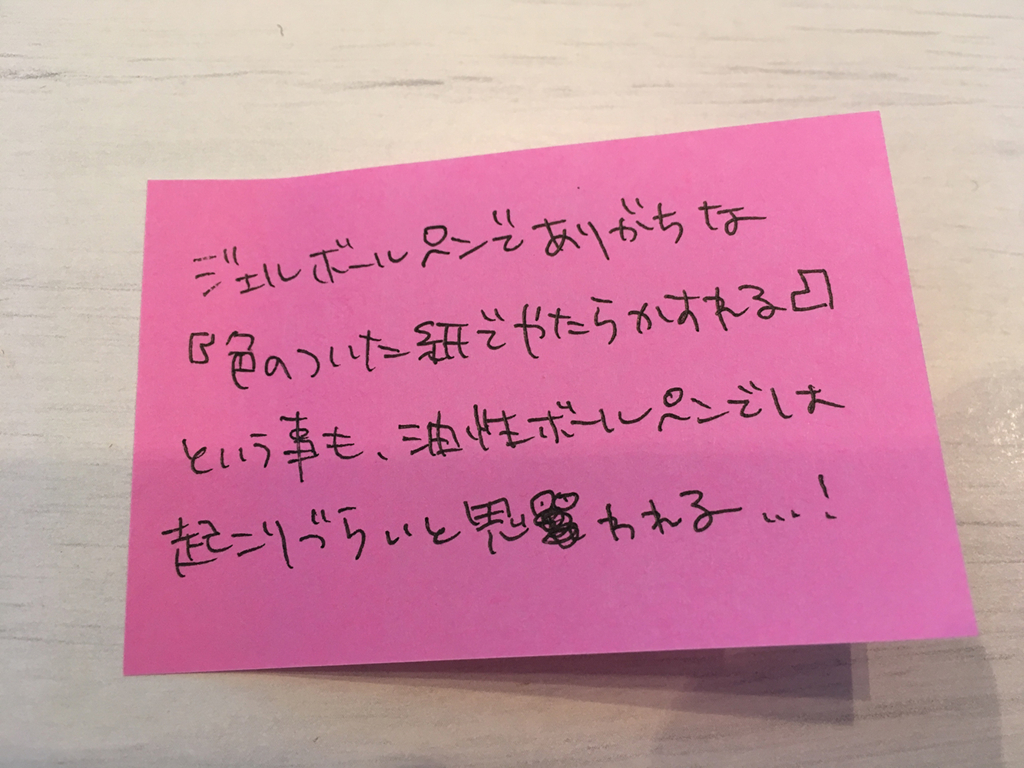 ジェルボールペンでありがちな
『色のついた紙でやたらかすれる』
という事も、油性ボールペンでは
起こりづらいと思われる…!